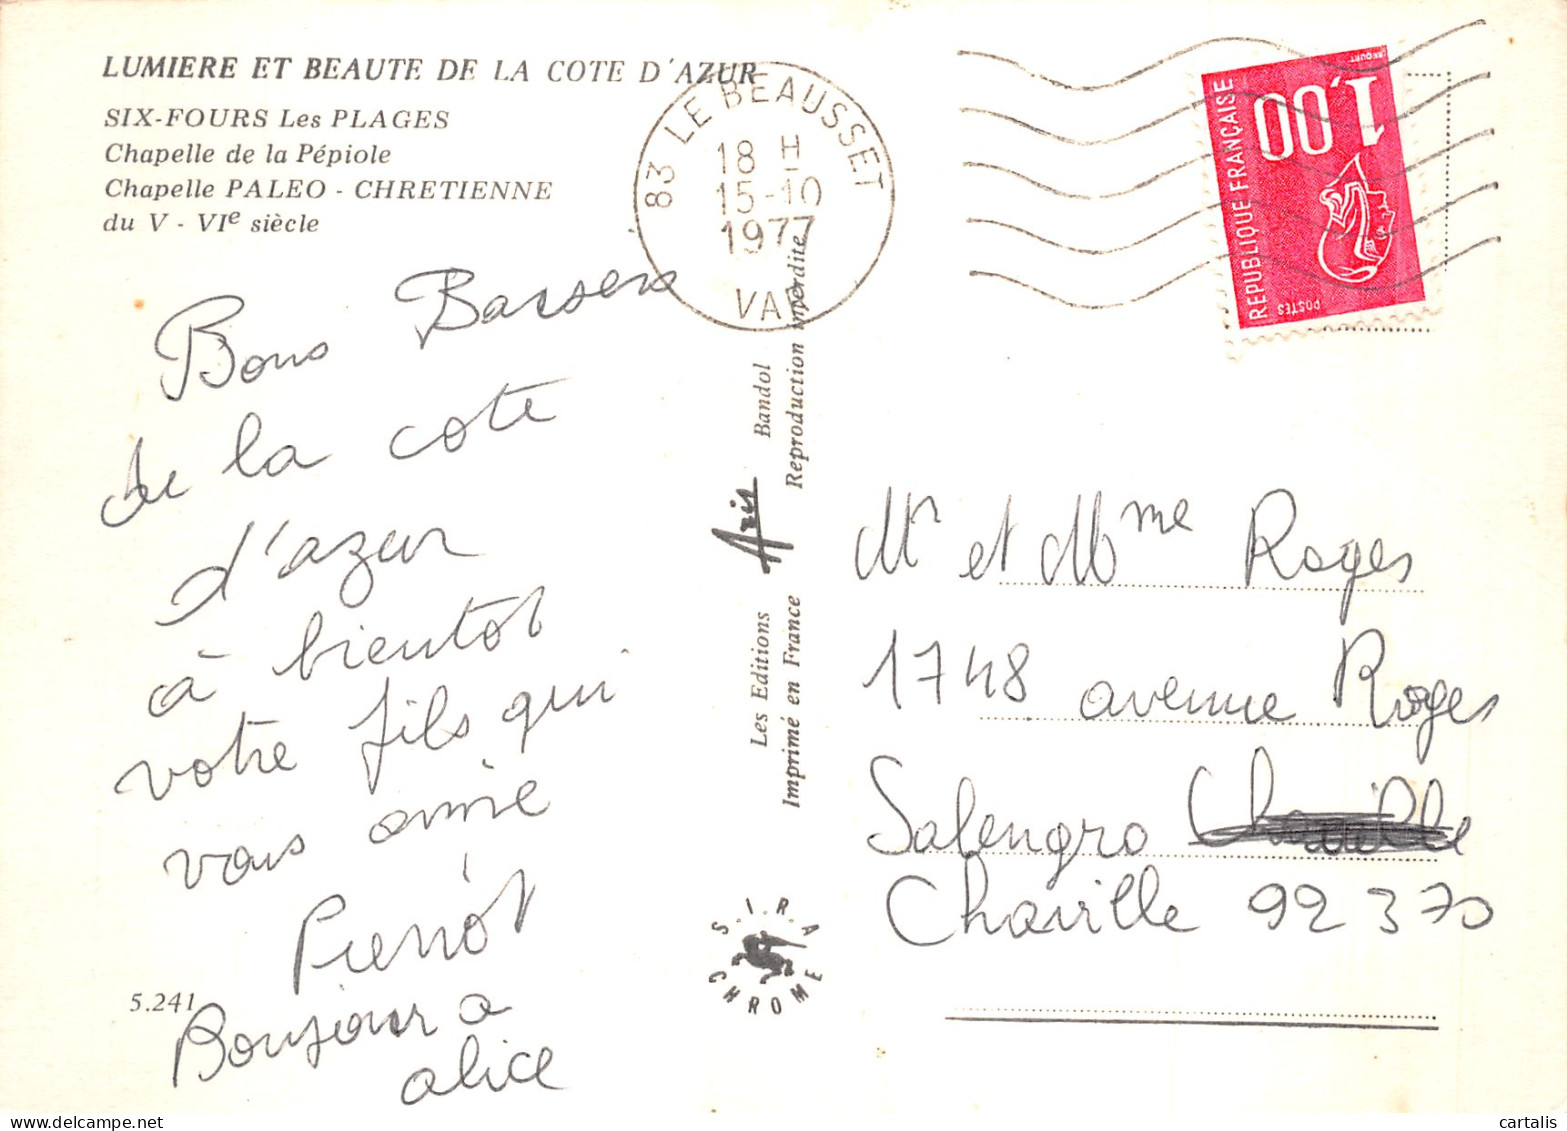 LUMIERE ET BEAUTE DE LA COTE D'AZUR
SIX-FOURS Les PLAGES
Chapelle de la Pépiole
Chapelle PALEO - CHRETIENNE
du V - VIe siècle
83 LE BEAUSSET
18 H
15-10
1977
VAR
REPUBLIQUE FRANÇAISE
1,00
POSTES
Bons Baisers
de la cote
d'azur
à bientot
votre fils qui
vous aime
Pierrot
Bonjour a
alice
5.241
Les Editions Aris Bandol
Imprimé en France Reproduction interdite
S.I.R.A
CHROME
Mr et Mme Roges
1748 avenue Roges
Salengro Chaville
Chaville 92370
cartalis